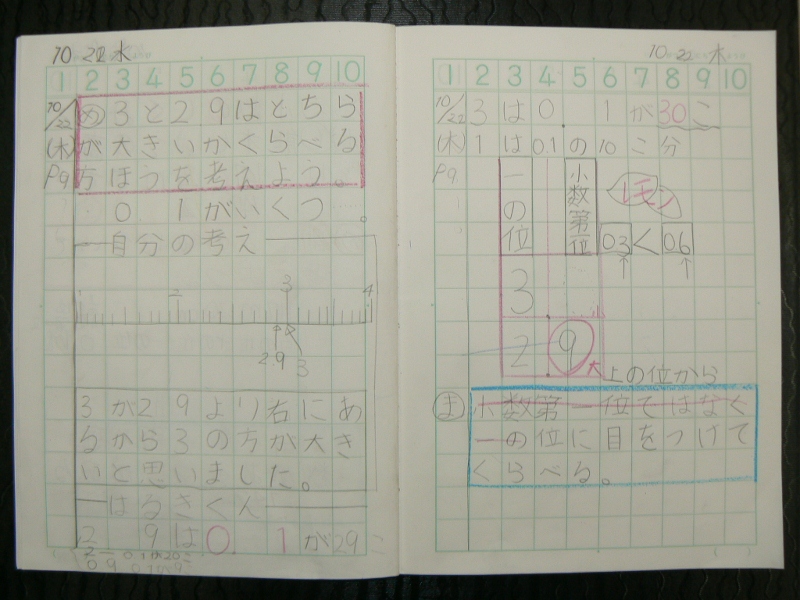 10 22 水
1 2 3 4 5 6 7 8 9 10
10/22 め 3と2 9はどちら
(木) が大きいかくらべる
P9 方ほうを考えよう。
0 1がいくつ。
自分の考え
1 2 3 4
2 9 3
3が2 9より右にあ
るから3の方が大き
いと思いました。
はるきくん
2 9は0 1が29こ
10 22 木
1 2 3 4 5 6 7 8 9 10
10/22 3は0 1が30こ
(木) 1は0.1の10こ分
P9 一の位 小数第一位
03<06
3
2 9 大
上の位から
ま 小数第一位ではなく
一の位に目をつけて
くらべる。